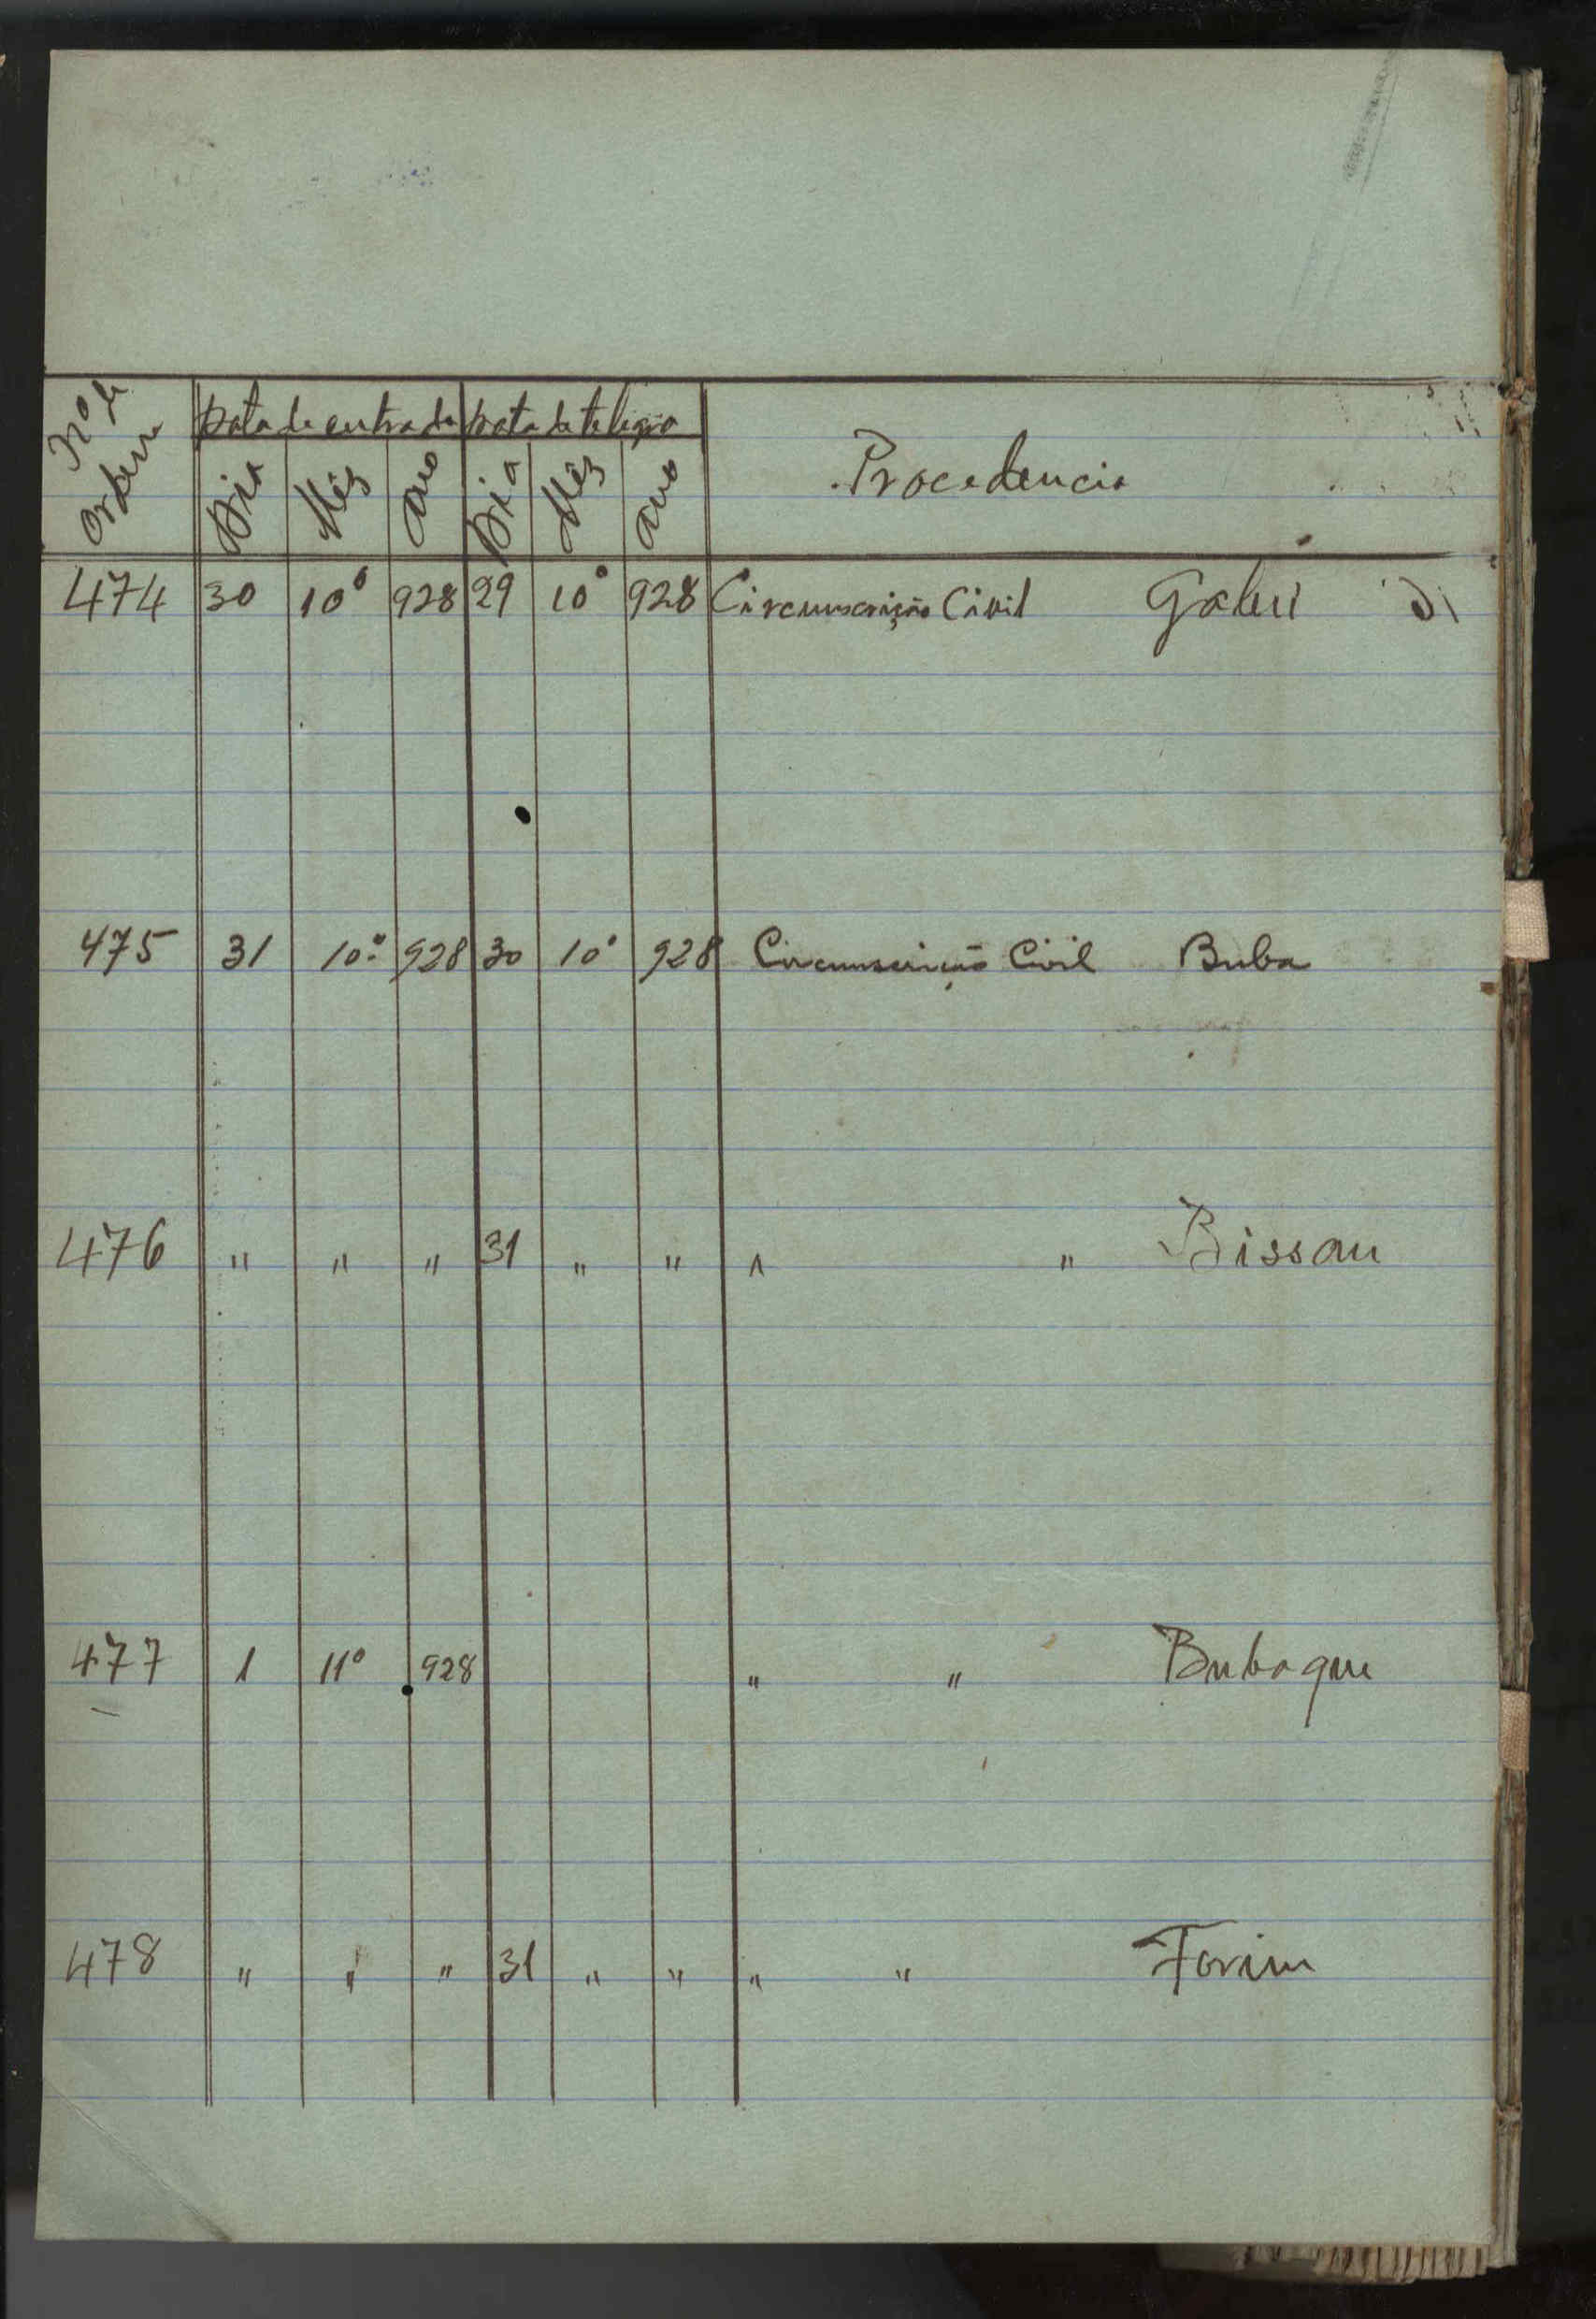 Nº de ordem Data de entrada Data de teligra Procedencia
Dia Mês Ano Dia Mês Ano
474 30 10º 928 29 10º 928 Circunscrição Civil Gabu
475 31 10º 928 30 10º 928 Circunscrição Civil Buba
476 " " " 31 " " " " Bissau
477 1 11º 928 " " Bubaque
478 " " " 31 " " " " Farim